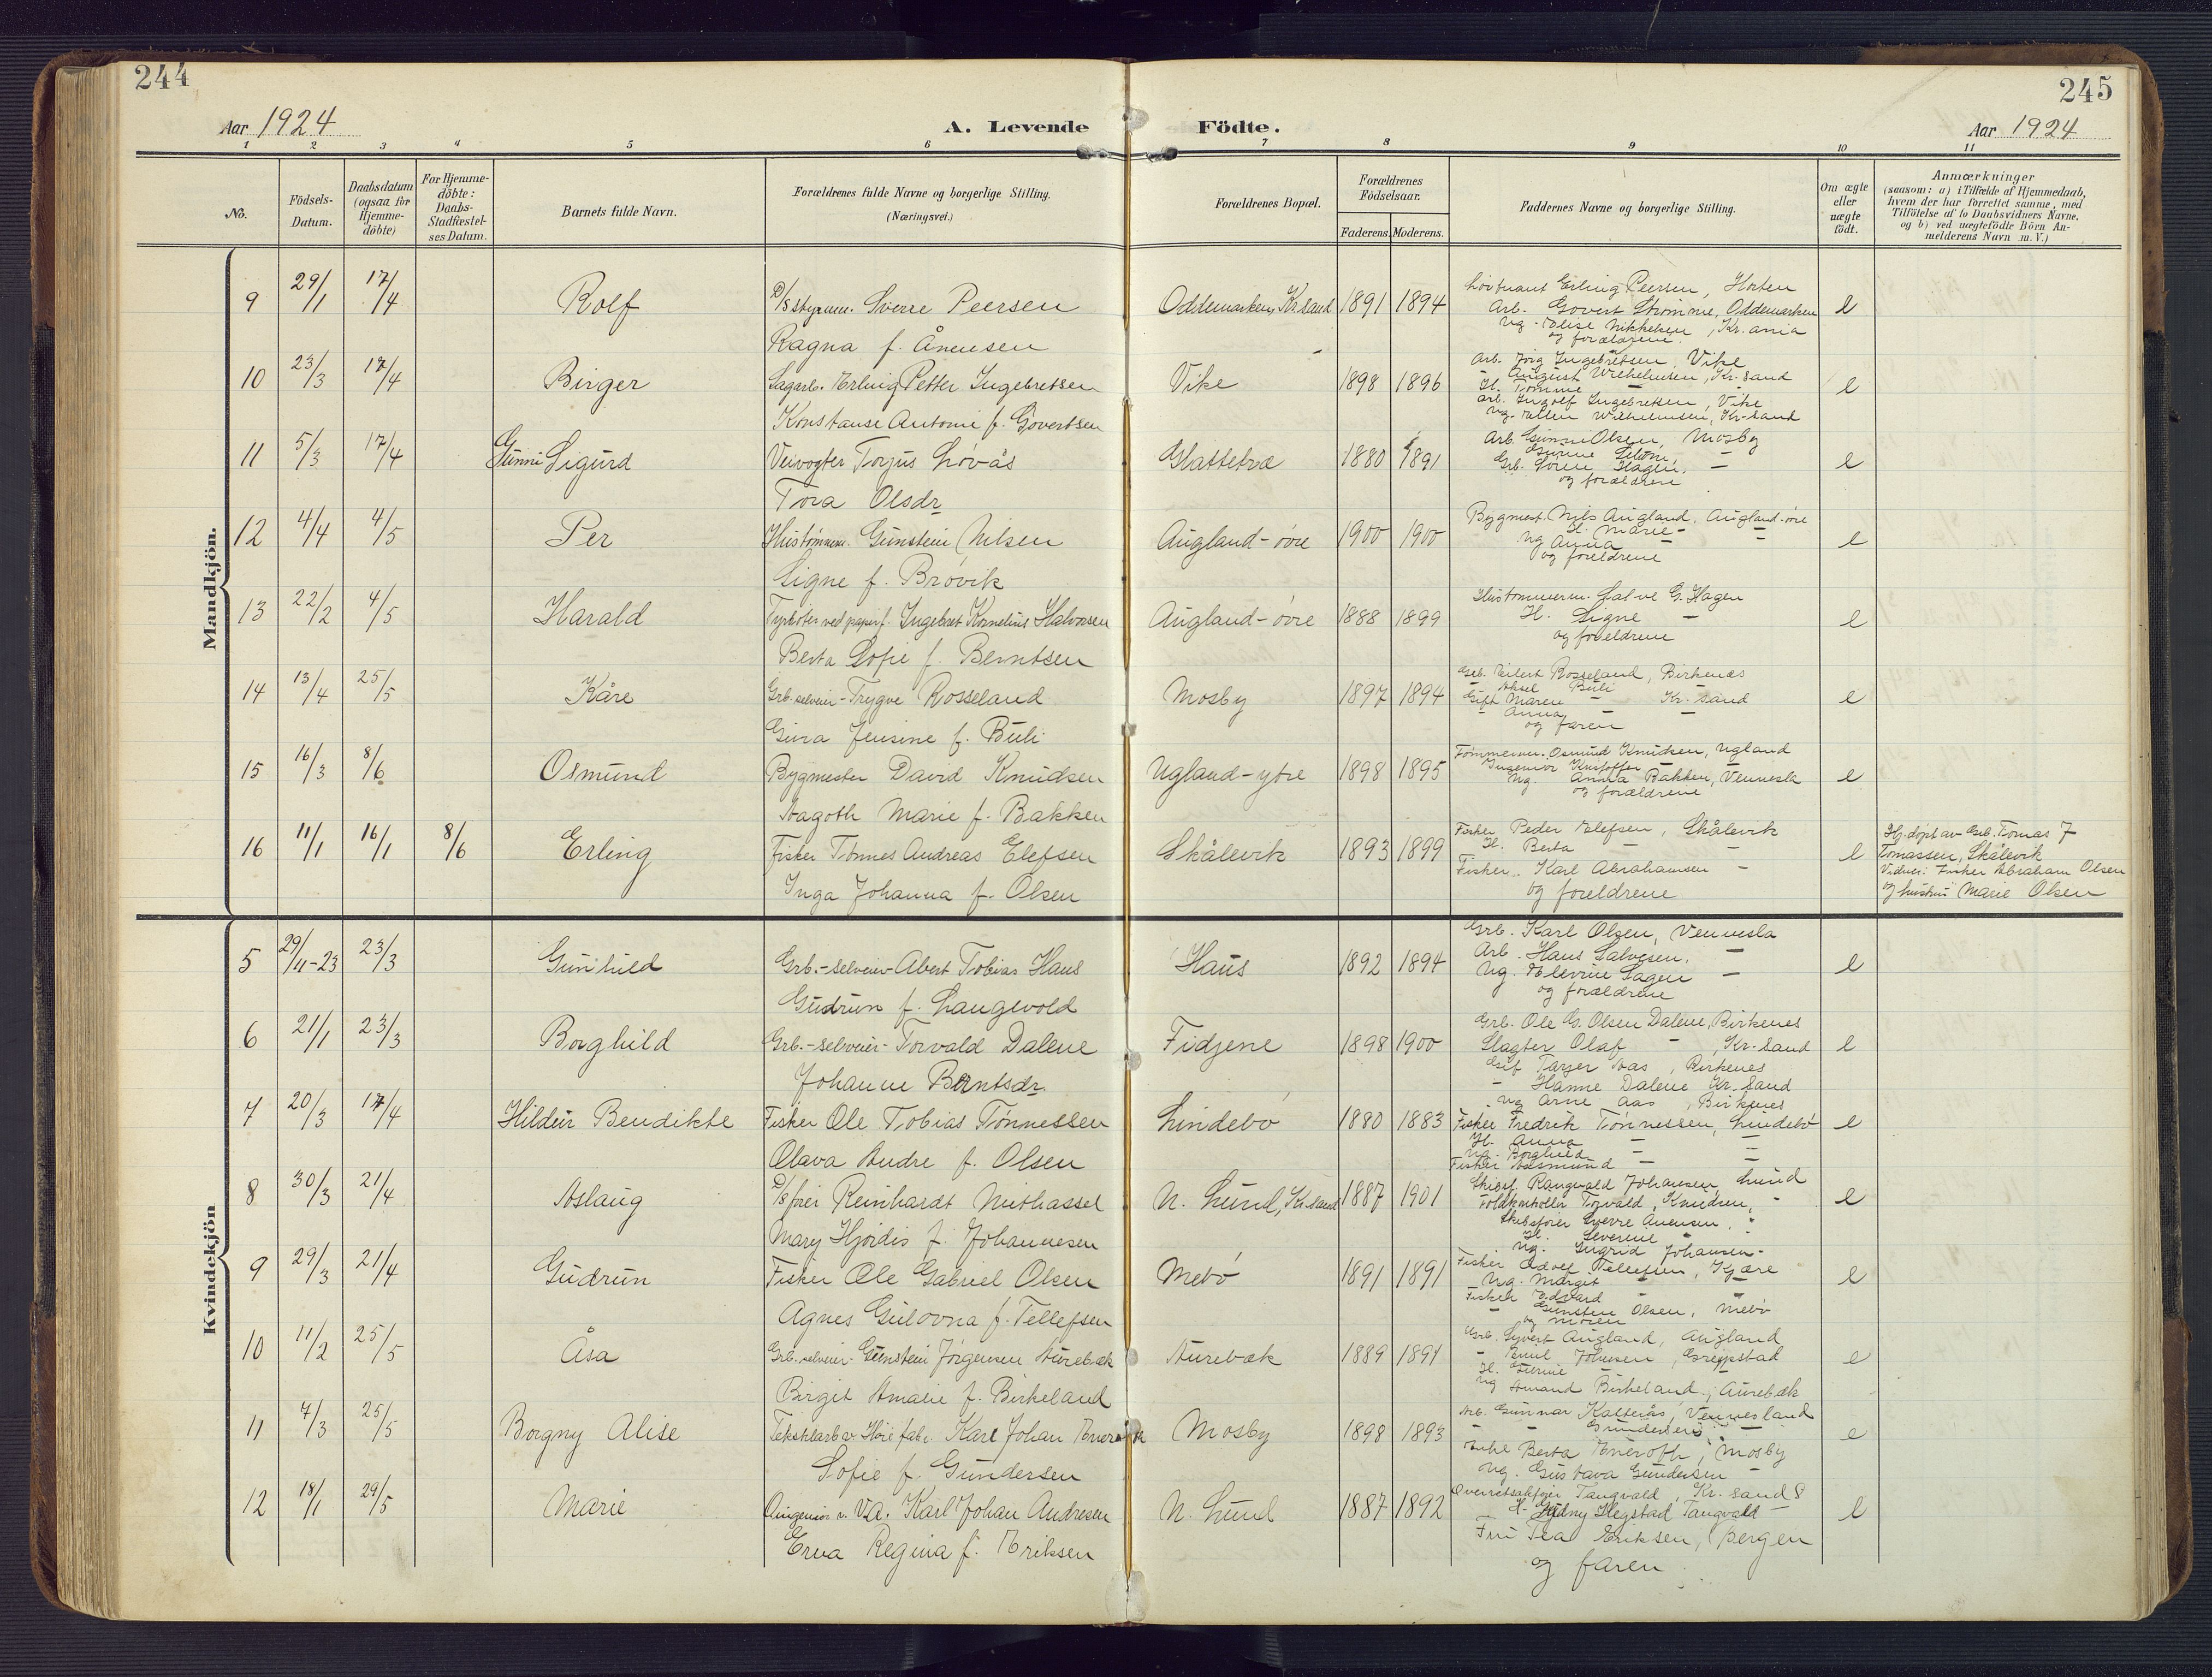 244
245
Aar 1924
A. Levende Födte.
Aar 1924
1 2 3 4 5 6 7 8 9 10 11
No.
Födsels-Datum.
Daabsdatum (ogsaa for Hjemme-döbte)
For Hjemme-döbte: Daabs-Stadfæstel-ses Datum.
Barnets fulde Navn.
Forældrenes fulde Navne og borgerlige Stilling.
(Næringsvei.)
Forældrenes Bopæl.
Forældrenes Födselsaar.
Faderens. Moderens.
Faddernes Navne og borgerlige Stilling.
Om ægte eller uægte födt.
Anmærkninger
(saasom: a) i Tilfælde af Hjemmedaab,
hvem der har forrettet samme, med
Tilföielse af to Daabsvidners Navne,
og b) ved uægtefödte Börn An-
melderens Navn m. V.)
Mandkjön.
9 29/1 17/4 Rolf D/s styrm. Sverre Peersen Oddemarken, Kr.sand 1891 1894 e
Ragna f. Ånensen
Løitnant Erling Peersen, Horten
Arb. Govert Strømme, Oddemarken
Ug. Elise Mikkelsen, Kr.ania
og forældrene.
10 23/3 17/4 Birger Sagarb. Erling Petter Ingebretsen Vike 1898 1896 e
Konstanse Antonie f. Govertsen
Arb. Ingebretsen, Vike
August Wilhelmsen, Kr.sand
H. Tomine
Arb. Ingolf Ingebretsen, Vike
Ug. Ellen Wilhelmsen, Kr-sand
11 5/3 17/4 Gunni Sigurd Veivogter Torjus Løvås Glattetræ 1880 1891 e
Tora Olsdr
Arb. Gunni Olsen, Mosby
Grb. Hagen. –
og forældrene
12 4/4 4/5 Per Hustømmerm. Gunstein Nilsen Augland-øvre 1900 1900 e
Signe f. Brøvik
Bygmest. Nils Augland, Augland-øvre
H. Marie –
Ug Anna –
og foreldrene
13 22/2 4/5 Harald Fyrbøter ved papirf. Ingebret Kornelius Halvorsen Augland-øvre 1888 1899 e
Berta Sofie f. Berntsen
Hustømmerm. Salve G. Hagen
H. Signe –
og foreldrene
14 13/4 25/5 Kåre Grb.-selveier-Trygve Rosseland Mosby 1897 1894 e
Gina Jensine f. Buli
Grb. Eilert Rosseland, Birkenes
– Aksel Buli –
Gift Maren – Kr. sand
– Anna – –
og faren
15 16/3 8/6 Osmund Bygmester David Knudsen Ugland-ytre 1898 1895 e
Dagoth Marie f. Bakken
Tømmerm. Osmund Knudsen, Ugland
Ingeniør Kristoffer –
Ug. Anna Bakken, Vennesla
og forældrene
16 11/1 16/1 8/6 Erling Fisker Tønnes Andreas Elefsen Skålevik 1893 1899 e
Inga Johanna f. Olsen
Fisker Peder Elefsen, Skålevik
H. Berta – –
Fisker. Karl Abrahamsen –
og foreldrene
Hj. døpt av Grb. Tomas T
Tomassen, Skålevik
Vidner: Fisker Abraham Olsen
og hustru Marie Olsen
Kvindekjön
5 29/11-23 23/3 Gunhild Grb.-selveier-Abert Tobias Haus Haus 1892 1894 e
Gudrun f. Langevold
Grb. Karl Olsen, Vennesla
Arb. Hans Salvesen. –
Ug. Elevine Sagen –
og forældrene
6 21/1 23/3 Borghild Grb.-selveier-Torvald Dalene Fidjene 1898 1900 e
Johanne Berntsdr.
Grb. Ole G. Olsen Dalene, Birkenes
Slagter Olaf – , Kr-sand
Gif Tarjer Aas, Birkenes
– Hanne Dalene Kr-sand
Ug Arne Aas, Birkenes
7 20/3 17/4 Hildur Bendikte Fisker Ole Tobias Tønnessen Lindebø 1880 1883 e
Olava Andre f. Olsen
Fisker Fredrik Tønnessen, Lindebø
H. Anna – –
Ug. Borghild – –
Fisker Aasmund – –
8 30/3 21/4 Aslaug Reinhardt Midhassel N. Lund, Kr.sand 1887 1901 e
Mary Hjørdis f. Johannesen
Skibsf. Rangvald Johansen, Lund
Toldkontrollør Torvald Knudsen, "
Skibsfører Sverre Anensen, "
H. Severine "
Ug. Ingrid Johansen –
9 29/3 21/4 Gudrun Fisker Ole Gabriel Olsen Mebø 1891 1891 e
Agnes Gulovna f. Tellefsen
Fisker Adolf Tellefsen, Kjære
Ug. Margit –
Fisker Edvard –
– Gunsten Olsen, Mebø
og moren
10 11/2 25/5 Åsa Grb.-selveier-Gunstein Jørgensen Aurebæk Aurebæk 1889 1891 e
Birgit Amalie f. Birkeland
Grb. Syvert Augland, Augland
– Emil Johnsen, Greipstad
H. –
Ug Amand Birkeland, Aurebæk
11 7/3 25/5 Borgny Alise Karl Johan Mosby 1898 1893 e
Sofie f. Gundersen
Arb. Gunnar Kalleraas, Vennesland
Enke Berta Eneroth, Mosby
Ug. Gustava Gundersen –
12 18/1 29/5 Marie Karl Johan Andresen N. Lund 1887 1892 e
Erna Regina f. Eriksen
Overretssakfører Tangvald, Kr. sand S
H. Gudny Hegstad Tangvald –
Fru Tea Eriksen, Bergen
og faren